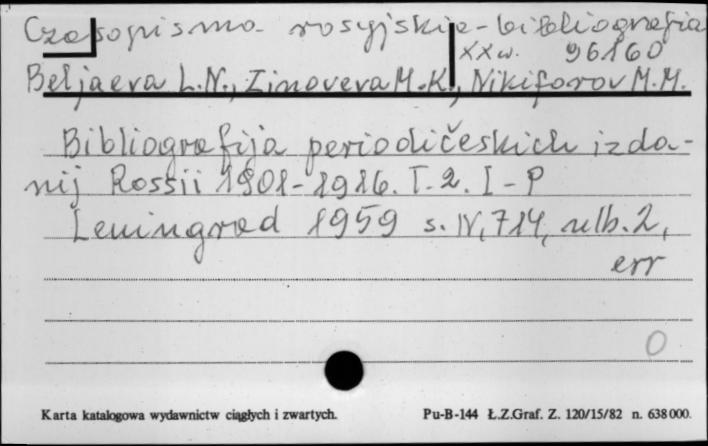 Czasopisma rosyjskie - bibliografia
XX w. 96160
Beljaeva L.N., Zinoveva M.K., Nikiforov M.M.
Bibliografija periodičeskich izda-
nij Rossii 1901-1916. T. 2. I - P
Leningrad 1959 s. IV, 714, nlb. 2,
err
0
Karta katalogowa wydawnictw ciągłych i zwartych. Pu-B-144 Ł.Z.Graf. Z. 120/15/82 n. 638000.